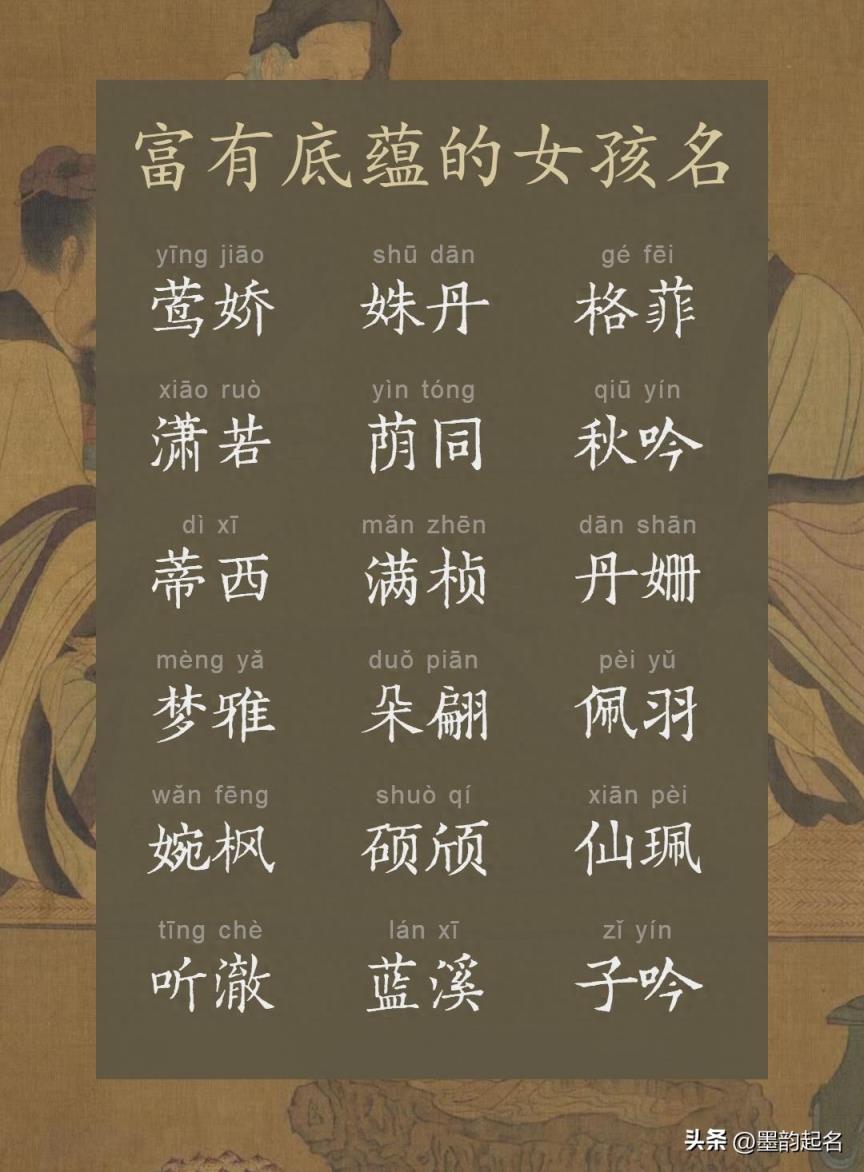 富有底蕴的女孩名
yīng jiāo shū dān gé fēi
莺娇 姝丹 格菲
xiāo ruò yìn tóng qiū yín
潇若 荫同 秋吟
dì xī mǎn zhēn dān shān
蒂西 满桢 丹姗
mèng yǎ duǒ piān pèi yǔ
梦雅 朵翩 佩羽
wǎn fēng shuò qí xiān pèi
婉枫 硕颀 仙珮
tīng chè lán xī zǐ yín
听澈 蓝溪 子吟
头条 @墨韵起名